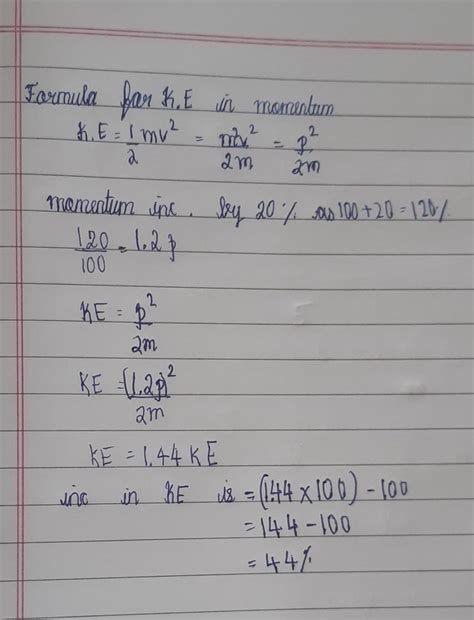 Formula for K.E in momentum
K.E = 1/2 mv² = m²v²/2m = p²/2m
momentum inc. by 20% as 100+20=120%
120/100 = 1.2p
KE = p²/2m
KE = (1.2p)²/2m
KE = 1.44 KE
inc in KE is = (144×100) - 100
= 144 - 100
= 44%